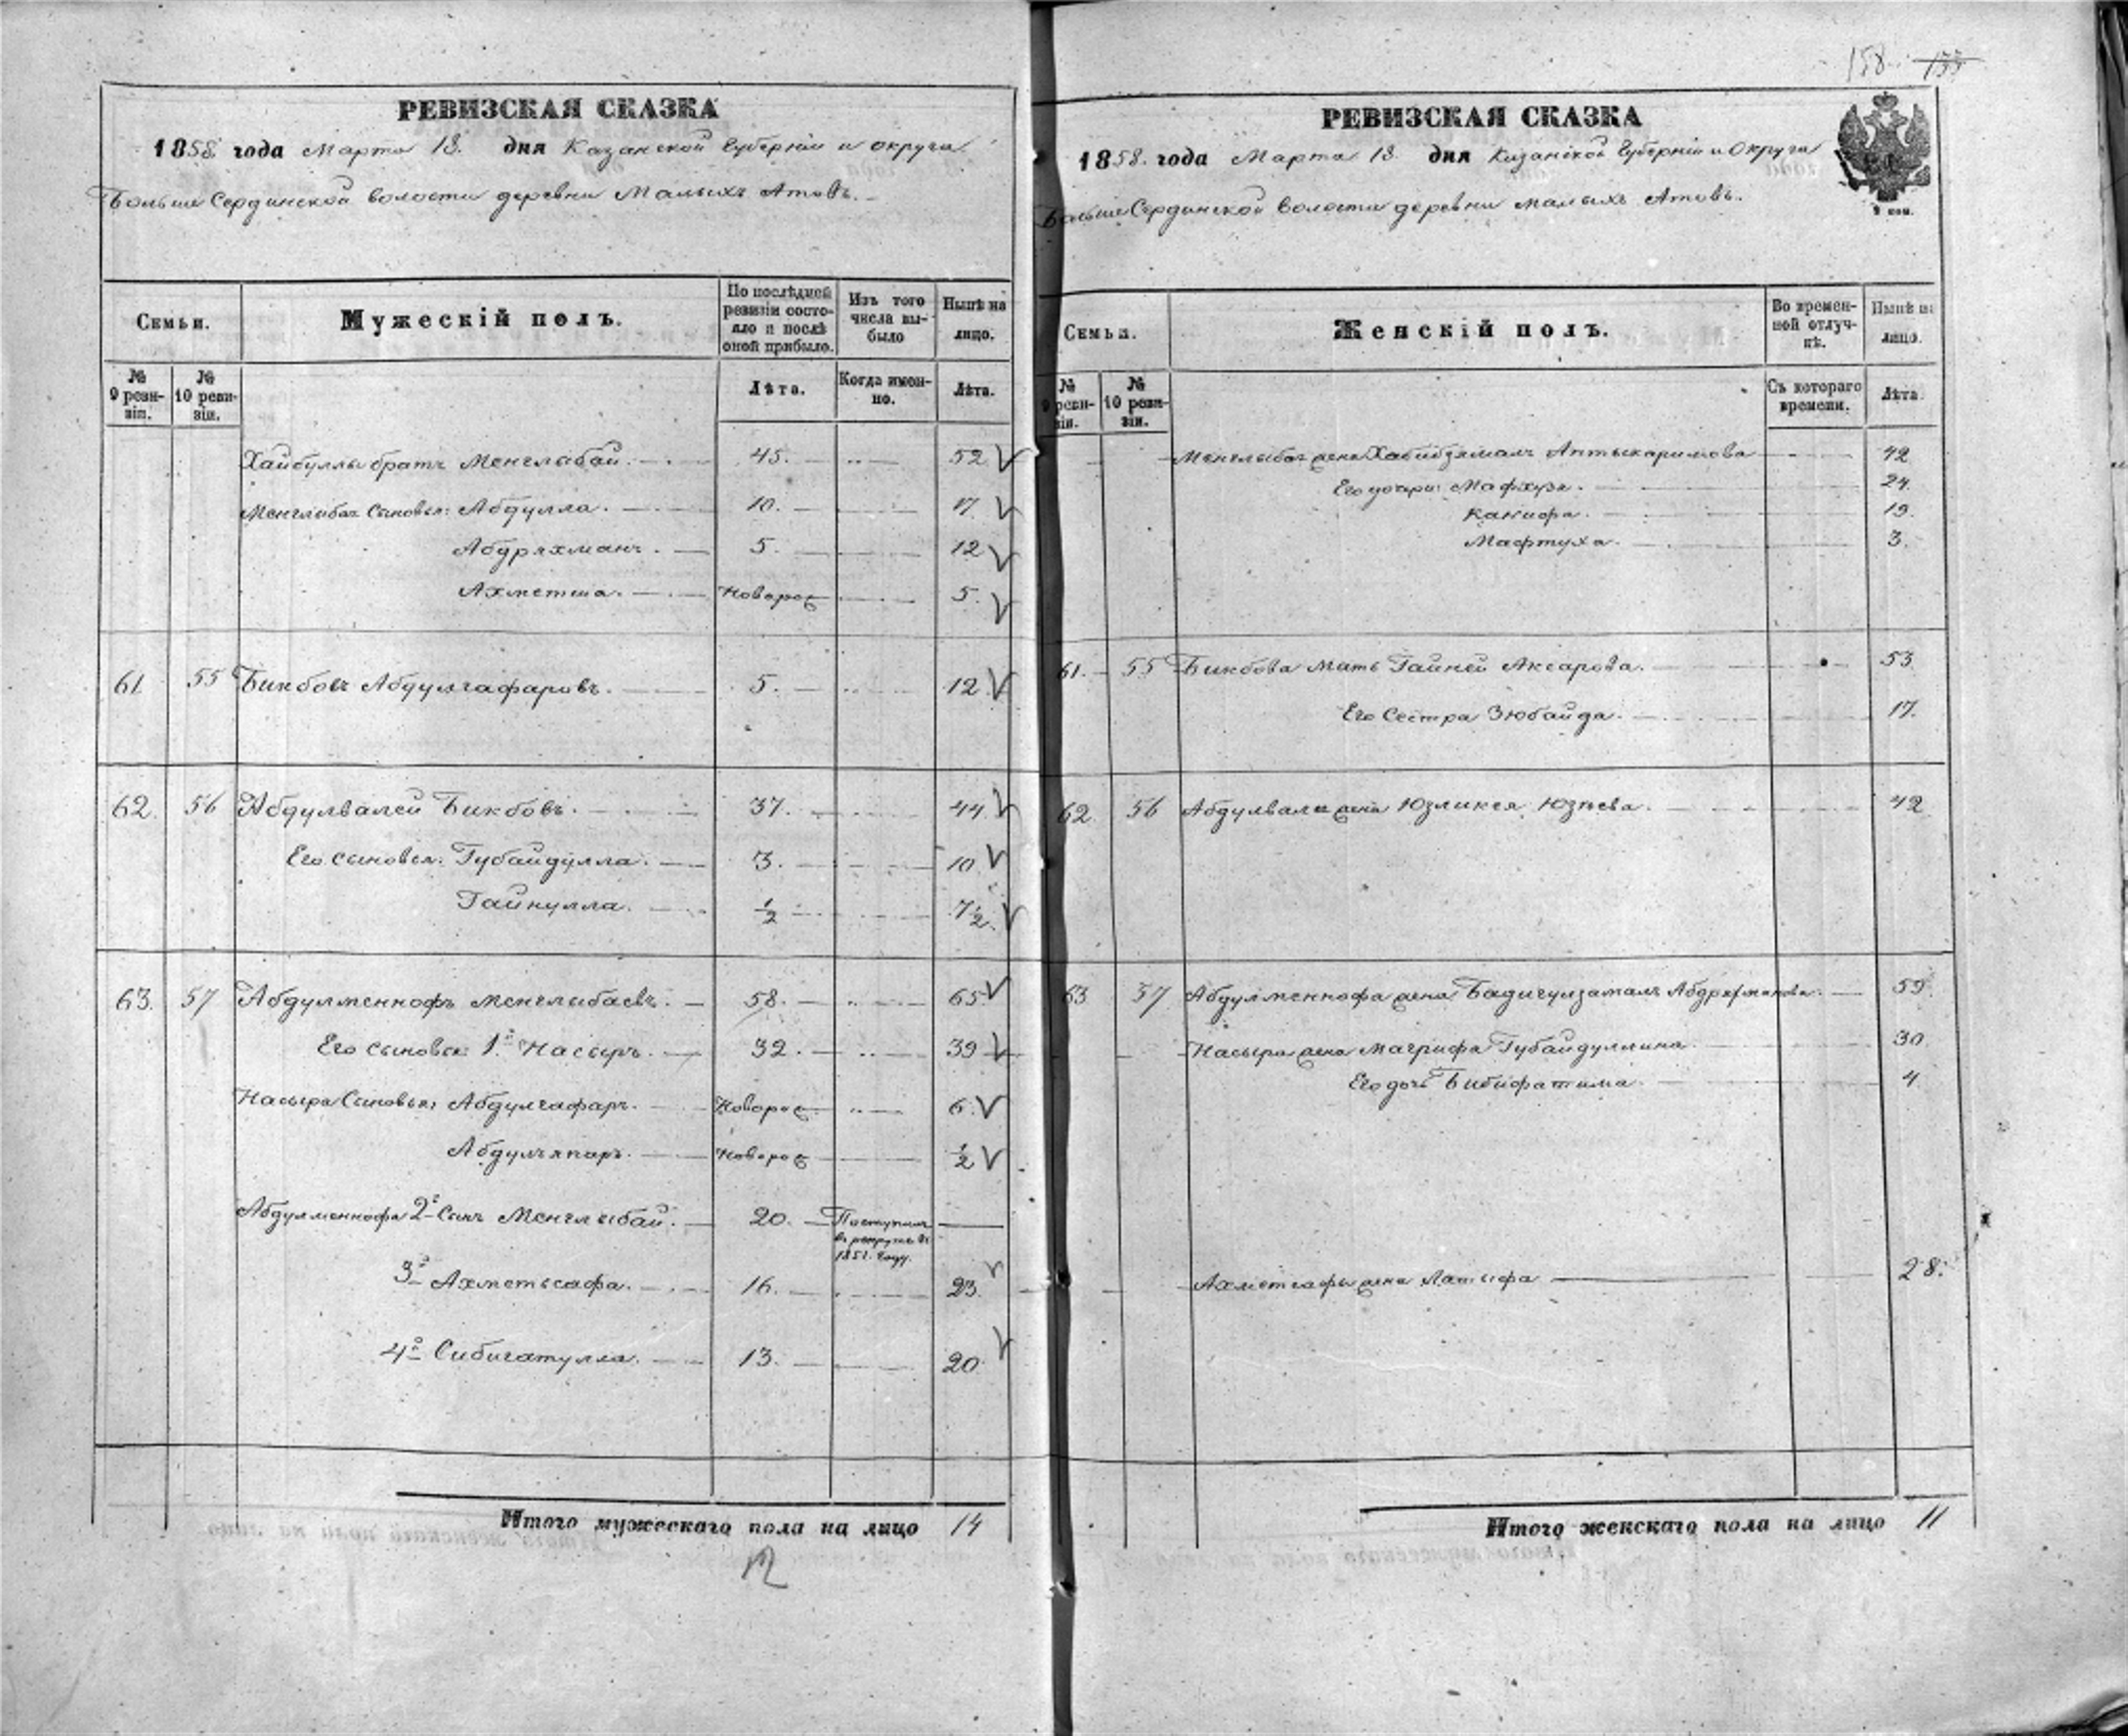 158 155
РЕВИЗСКАЯ СКАЗКА
1858 года Марта 18. дня Казанской Губерніи и округа
Больше Сердинской волости деревни Малыхъ Атовъ.
Семьи.
Мужескій полъ.
По послѣдней ревизіи состояло и послѣ оной прибыло.
Изъ того числа выбыло
Нынѣ на лицо.
№ 9 ревизіи.
№ 10 ревизіи.
Лѣта.
Когда именно.
Лѣта.
Хайбуллы братъ Менглыбай. 45. 52
Менглыбая Сыновья: Абдулла. 10. 17
Абдряхманъ. 5. 12
Ахметша. Новорож 5.
61 55 Бикбовъ Абдулгафаровъ. 5. 12
62. 56 Абдулвалей Бикбовъ. 37. 44
Его сыновья: Губайдулла. 3. 10
Гайнулла. 1/2 7 1/2
63. 57 Абдулменнофъ Менглыбаевъ. 58. 65
Его сыновья: 1й Насыръ. 32. 39
Насыра Сыновья: Абдулгафаръ. Новорож. 6.
Абдулъяпаръ. Новорож 1/2
Абдулменнофа 2й Сынъ Менглыбай. 20. Поступилъ
въ рекруты въ
185 году.
3й Ахметьсафа. 16. 23.
4й Сибигатулла. 13. 20
Итого мужескаго пола на лицо 14
РЕВИЗСКАЯ СКАЗКА
1858. года Марта 18 дня Казанской Губерніи и Округа
Больше Сердинской Волости деревни Малыхъ Атовъ.
Семьи.
Женскій полъ.
Во временной отлучкѣ.
Нынѣ на лицо.
№ 9 ревизіи.
№ 10 ревизіи.
Съ котораго времени.
Лѣта
Менглыбая жена Хабибзямалъ Аптыкаримова 42
Его дочери: Мафхуза. 24.
Канифа. 19.
Мафтуха. 3.
61. 55 Бикбова Мать Гайней Аксарова. 53
Его Сестра Зюбайда. 17.
62. 56 Абдулвалея жена Юзликея Юзеева. 42
63 57 Абдулменнофа жена Бадигулзамалъ Абдряхманова. 59.
Насыра жена Магрифа Губайдуллина 30.
Его дочь Бибифатима. 4
Ахметсафы жена Латыфа 28.
Итого женскаго пола на лицо 11